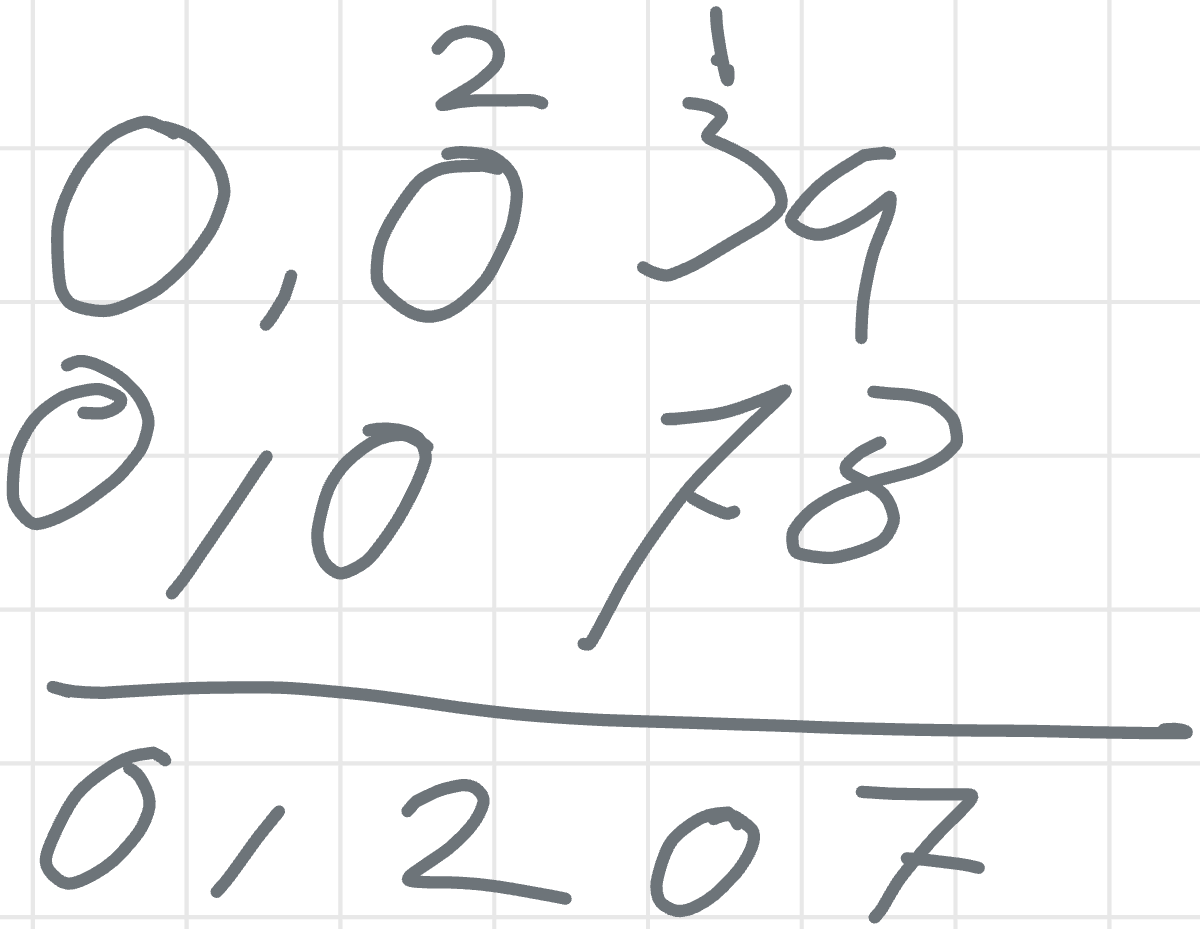 2 1
0,039
0,078
0,207